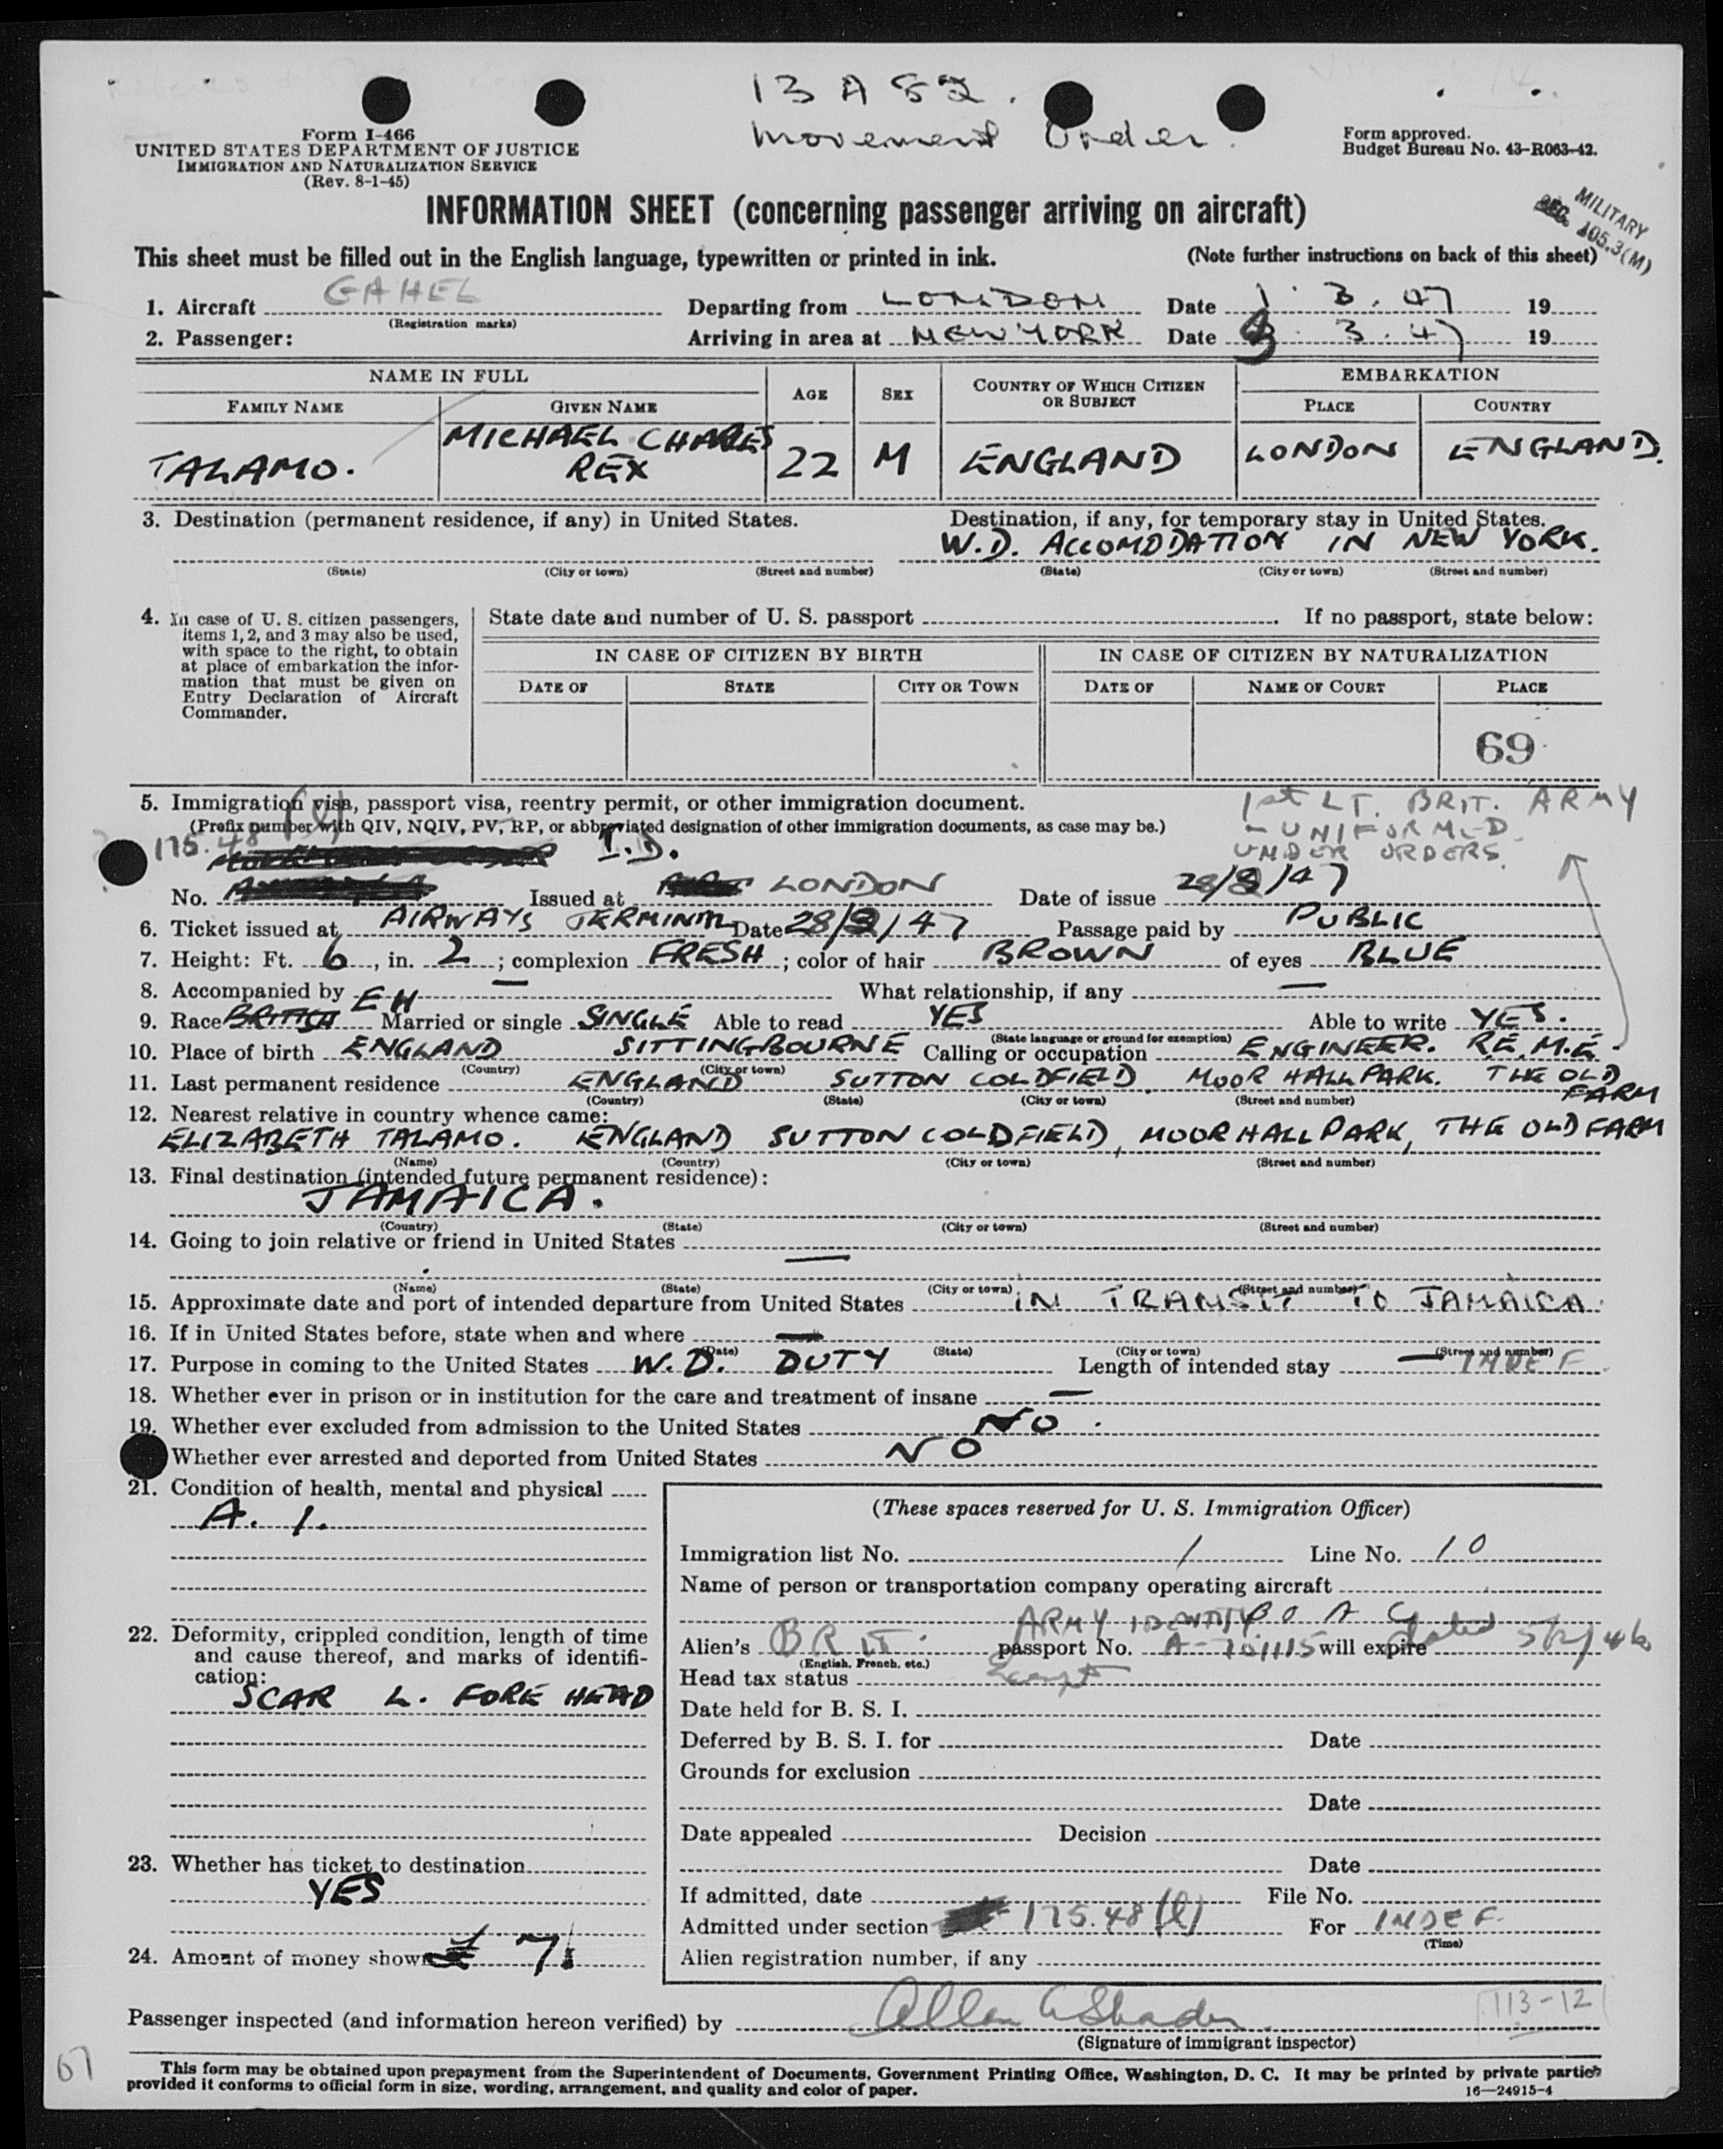 13 A 82.
Movement Order.
Form I-466
UNITED STATES DEPARTMENT OF JUSTICE
IMMIGRATION AND NATURALIZATION SERVICE
(Rev. 8-1-45)
Form approved.
Budget Bureau No. 43-R063-42.
INFORMATION SHEET (concerning passenger arriving on aircraft)
MILITARY
SEC. 105.3(M)
This sheet must be filled out in the English language, typewritten or printed in ink. (Note further instructions on back of this sheet)
1. Aircraft GAHEL Departing from LONDON Date 1. 3. 47 19
(Registration marks)
2. Passenger: Arriving in area at NEW YORK Date 3. 3. 47 19
NAME IN FULL AGE SEX COUNTRY OF WHICH CITIZEN OR SUBJECT EMBARKATION
FAMILY NAME GIVEN NAME PLACE COUNTRY
TALAMO. MICHAEL CHARLES REX 22 M ENGLAND LONDON ENGLAND.
3. Destination (permanent residence, if any) in United States. Destination, if any, for temporary stay in United States.
W.D. ACCOMODATION IN NEW YORK.
(State) (City or town) (Street and number) (State) (City or town) (Street and number)
4. In case of U. S. citizen passengers, items 1, 2, and 3 may also be used, with space to the right, to obtain at place of embarkation the information that must be given on Entry Declaration of Aircraft Commander.
State date and number of U. S. passport . If no passport, state below:
IN CASE OF CITIZEN BY BIRTH IN CASE OF CITIZEN BY NATURALIZATION
DATE OF STATE CITY OR TOWN DATE OF NAME OF COURT PLACE
69
5. Immigration visa, passport visa, reentry permit, or other immigration document.
(Prefix number with QIV, NQIV, PV, RP, or abbreviated designation of other immigration documents, as case may be.)
1st LT. BRIT. ARMY
- UNIFORMED
UNDER ORDERS.
175.48 (l) I.D.
No. Issued at LONDON Date of issue 28/2/47
6. Ticket issued at AIRWAYS TERMINAL Date 28/2/47 Passage paid by PUBLIC
7. Height: Ft. 6, in. 2; complexion FRESH; color of hair BROWN of eyes BLUE
8. Accompanied by — What relationship, if any —
EH
9. Race BRITISH Married or single SINGLE Able to read YES Able to write YES.
(State language or ground for exemption)
10. Place of birth ENGLAND SITTINGBOURNE Calling or occupation ENGINEER. R.E.M.E.
(Country) (City or town)
11. Last permanent residence ENGLAND SUTTON COLDFIELD MOOR HALL PARK. THE OLD FARM
(Country) (State) (City or town) (Street and number)
12. Nearest relative in country whence came:
ELIZABETH TALAMO. ENGLAND SUTTON COLDFIELD, MOOR HALL PARK, THE OLD FARM
(Name) (Country) (City or town) (Street and number)
13. Final destination (intended future permanent residence):
JAMAICA.
(Country) (State) (City or town) (Street and number)
14. Going to join relative or friend in United States
—
(Name) (State) (City or town) (Street and number)
15. Approximate date and port of intended departure from United States IN TRANSIT TO JAMAICA.
16. If in United States before, state when and where —
(Date) (State) (City or town) (Street and number)
17. Purpose in coming to the United States W.D. DUTY Length of intended stay — INDEF.
18. Whether ever in prison or in institution for the care and treatment of insane —
19. Whether ever excluded from admission to the United States NO.
Whether ever arrested and deported from United States NO
21. Condition of health, mental and physical
A. 1.
22. Deformity, crippled condition, length of time and cause thereof, and marks of identification:
SCAR L. FOREHEAD
23. Whether has ticket to destination
YES
24. Amount of money shown £ 7
(These spaces reserved for U. S. Immigration Officer)
Immigration list No. 1 Line No. 10
Name of person or transportation company operating aircraft
B O A C
ARMY IDENTITY
Alien's BRIT. passport No. A-701115 will expire dated 5/2/46
(English, French, etc.)
Head tax status Exempt
Date held for B. S. I.
Deferred by B. S. I. for Date
Grounds for exclusion
Date
Date appealed Decision
Date
If admitted, date File No.
Admitted under section 175.48 (l) For INDEF.
(Time)
Alien registration number, if any
Passenger inspected (and information hereon verified) by Allen
(Signature of immigrant inspector)
113-12
67
This form may be obtained upon prepayment from the Superintendent of Documents, Government Printing Office, Washington, D. C. It may be printed by private parties
provided it conforms to official form in size, wording, arrangement, and quality and color of paper.
16—24915-4